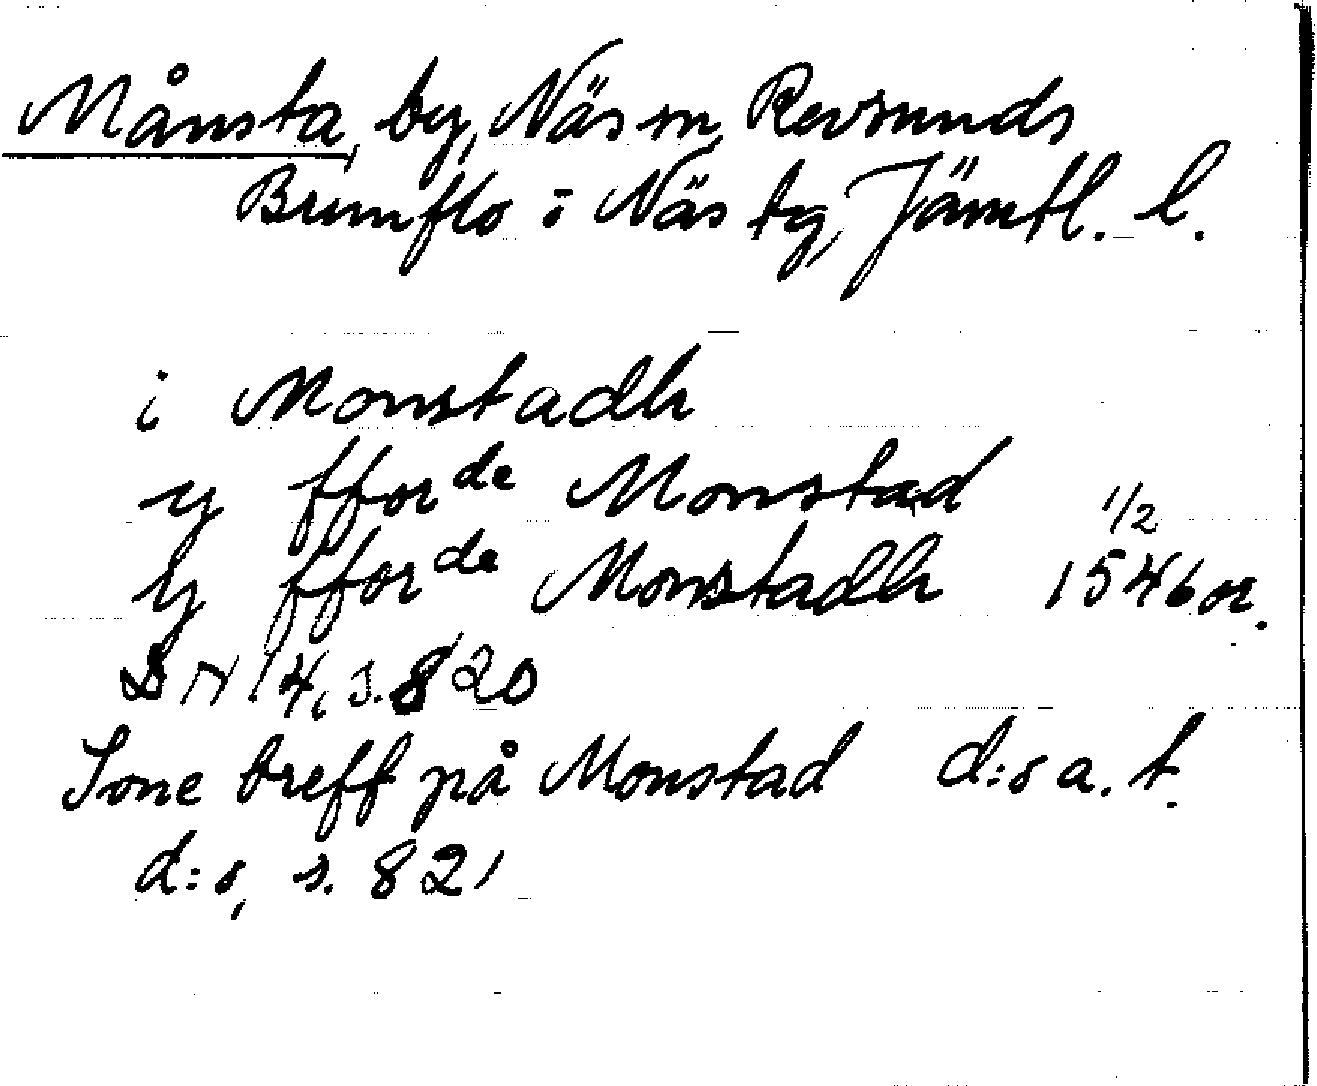 Månsta, by, Näs sn, Revsunds
Brunflo o Näs tg, Jämtl. l.
i Monstadh
y fforde Monstad 1/2
y fforde Monstadh 1546 or.
DN 14, s. 820
Jone breff på Monstad d:o a. t.
d:o, s. 821